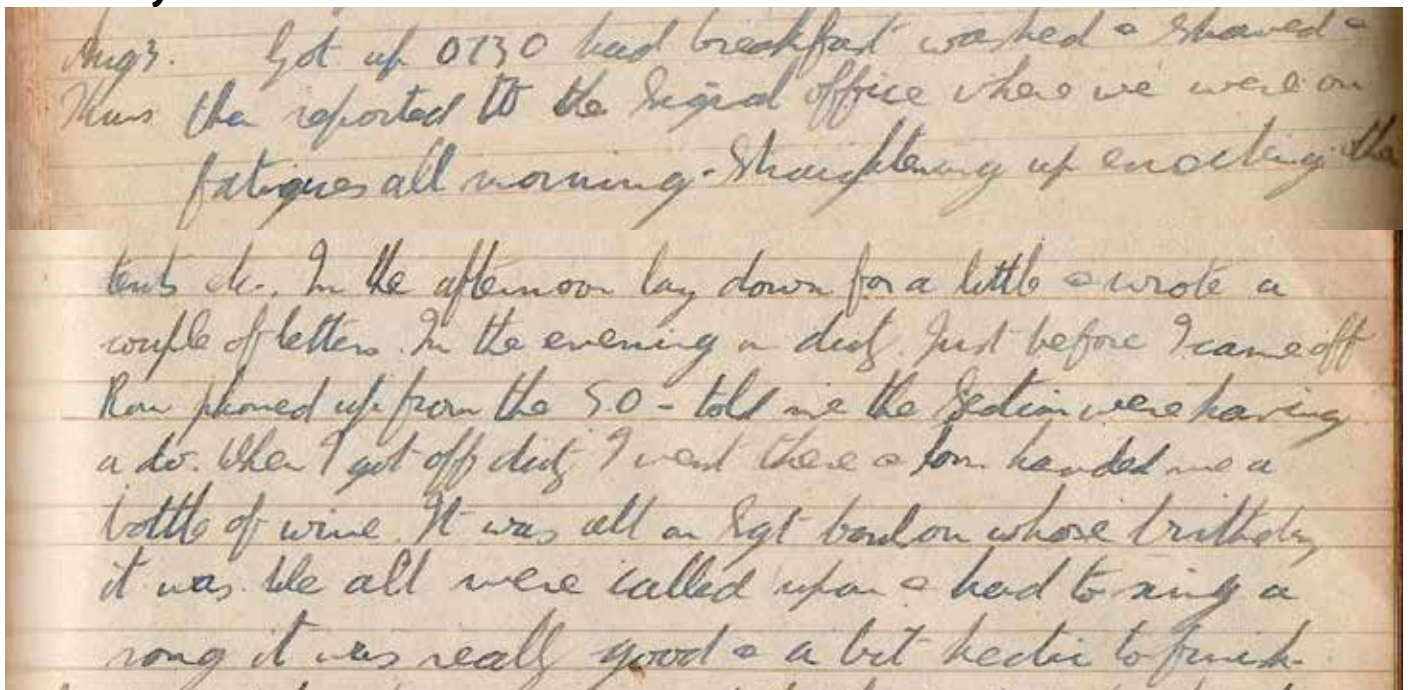 Aug 3. Got up 0730 had breakfast washed & shaved &
Thurs then reported to the Signal office where we were on
fatigues all morning - straightening up erecting the
tents etc. In the afternoon lay down for a little & wrote a
couple of letters. In the evening on duty. Just before I came off
Ron phoned up from the S.O - told me the Section were having
a do. When I got off duty I went there & Tom handed me a
bottle of wine. It was all on Sgt whose birthday
it was. We all were called upon & had to sing a
song it was really good & a bit hectic to finish.